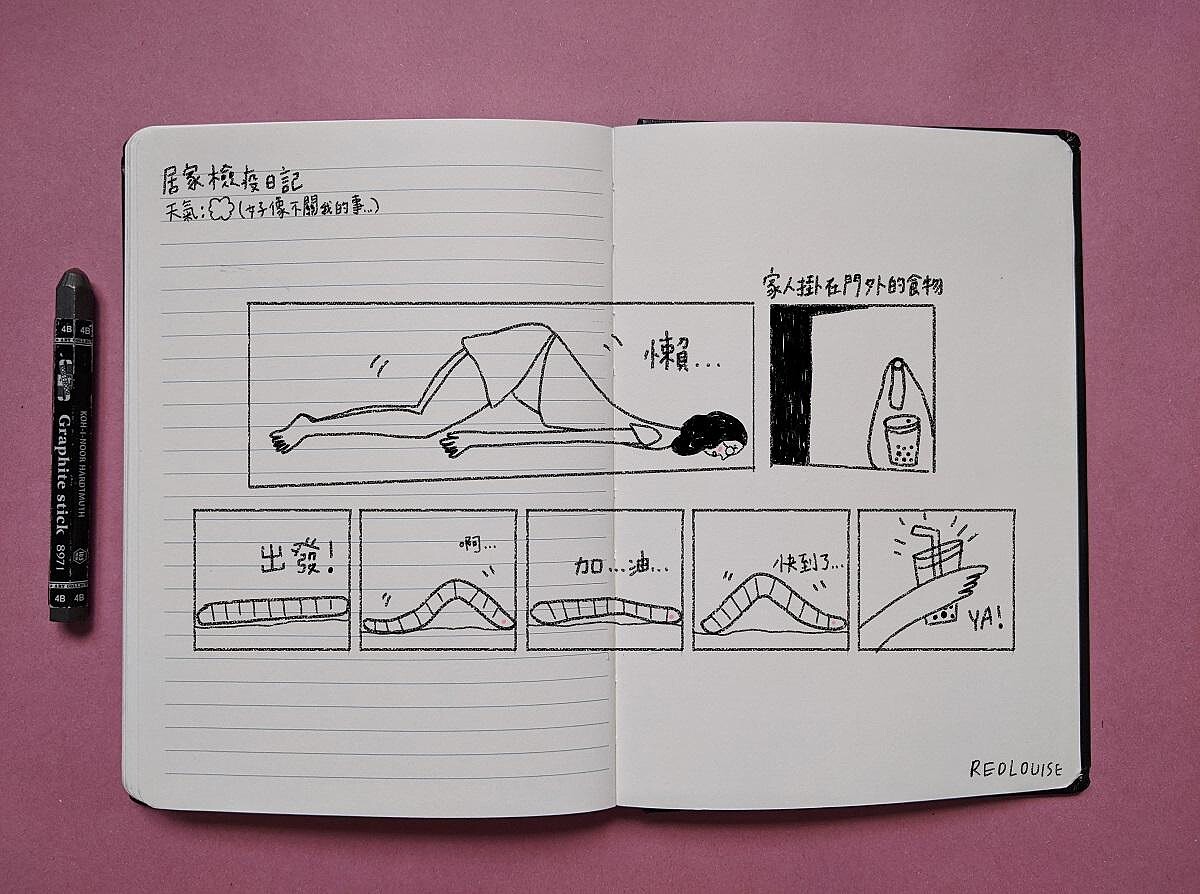 居家檢疫日記
天氣：(好像不關我的事...)
家人掛在門外的食物
懶...
出發!
啊...
加...油...
快到了...
YA!
REDLOUISE
4B 4B
KOH-I-NOOR HARDTMUTH
Graphite stick 8971
4B 4B